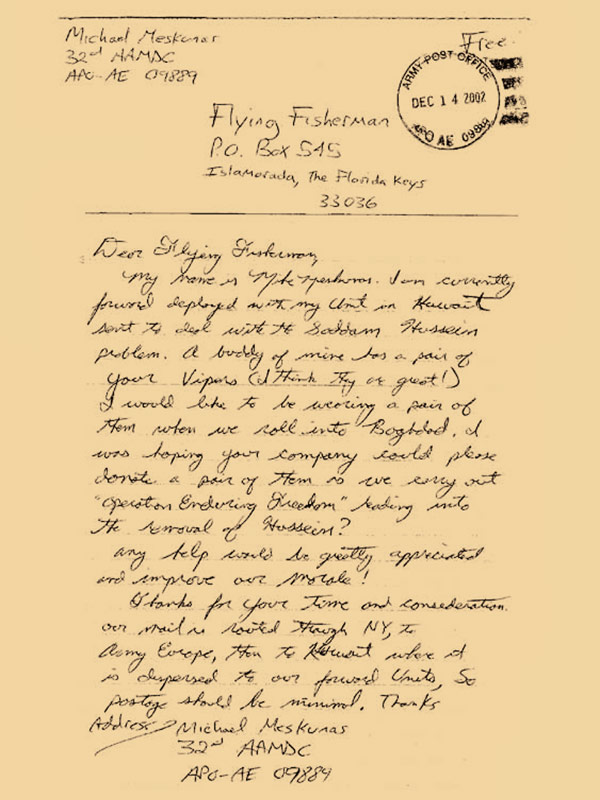 Michael Meskunas
32nd AAMDC
APO-AE 09889
Free
ARMY POST OFFICE
DEC 14 2002
APO AE 09889
Flying Fisherman
P.O. Box 545
Islamorada, The Florida Keys
33036
Dear Flying Fisherman,
My name is Mike Meskunas. I am currently
forward deployed with my Unit in Kuwait
sent to deal with the Saddam Hussein
problem. A buddy of mine has a pair of
your Vipers (I think they are great!)
I would like to be wearing a pair of
them when we roll into Baghdad. I
was hoping your company could please
donate a pair of them as we carry out
"Operation Enduring Freedom" leading into
the removal of Hussein?
Any help would be greatly appreciated
and improve our morale!
Thanks for your time and consideration.
our mail is routed through NY, to
Army Europe, then to Kuwait where it
is dispersed to our forward Units, So
postage should be minimal. Thanks
Address Michael Meskunas
32nd AAMDC
APO-AE 09889